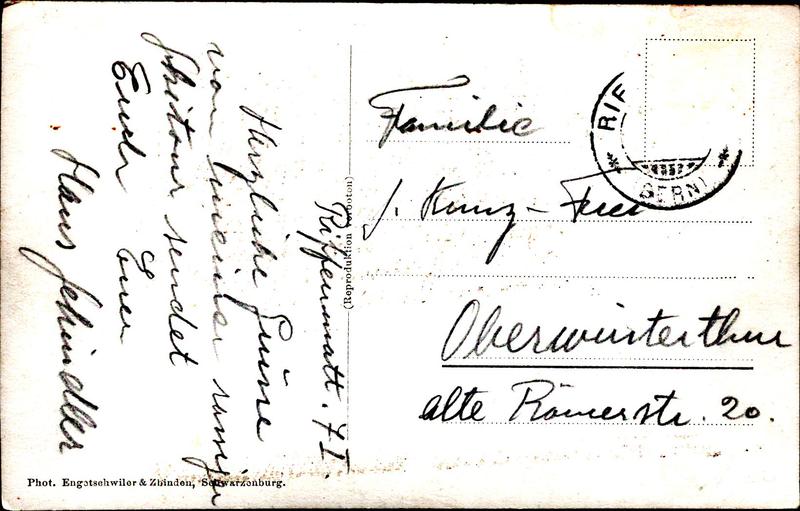 Riffenmatt. 7 I
Herzliche Grüsse
von meiner
Skitour sendet
Euch Euer
Hans Schindler
(Reproduktion verboten)
Familie
J. Kunz-
Oberwinterthur
alte Römerstr. 20.
RIF
(BERN)
Phot. Engetschwiler & Zbinden, Schwarzenburg.